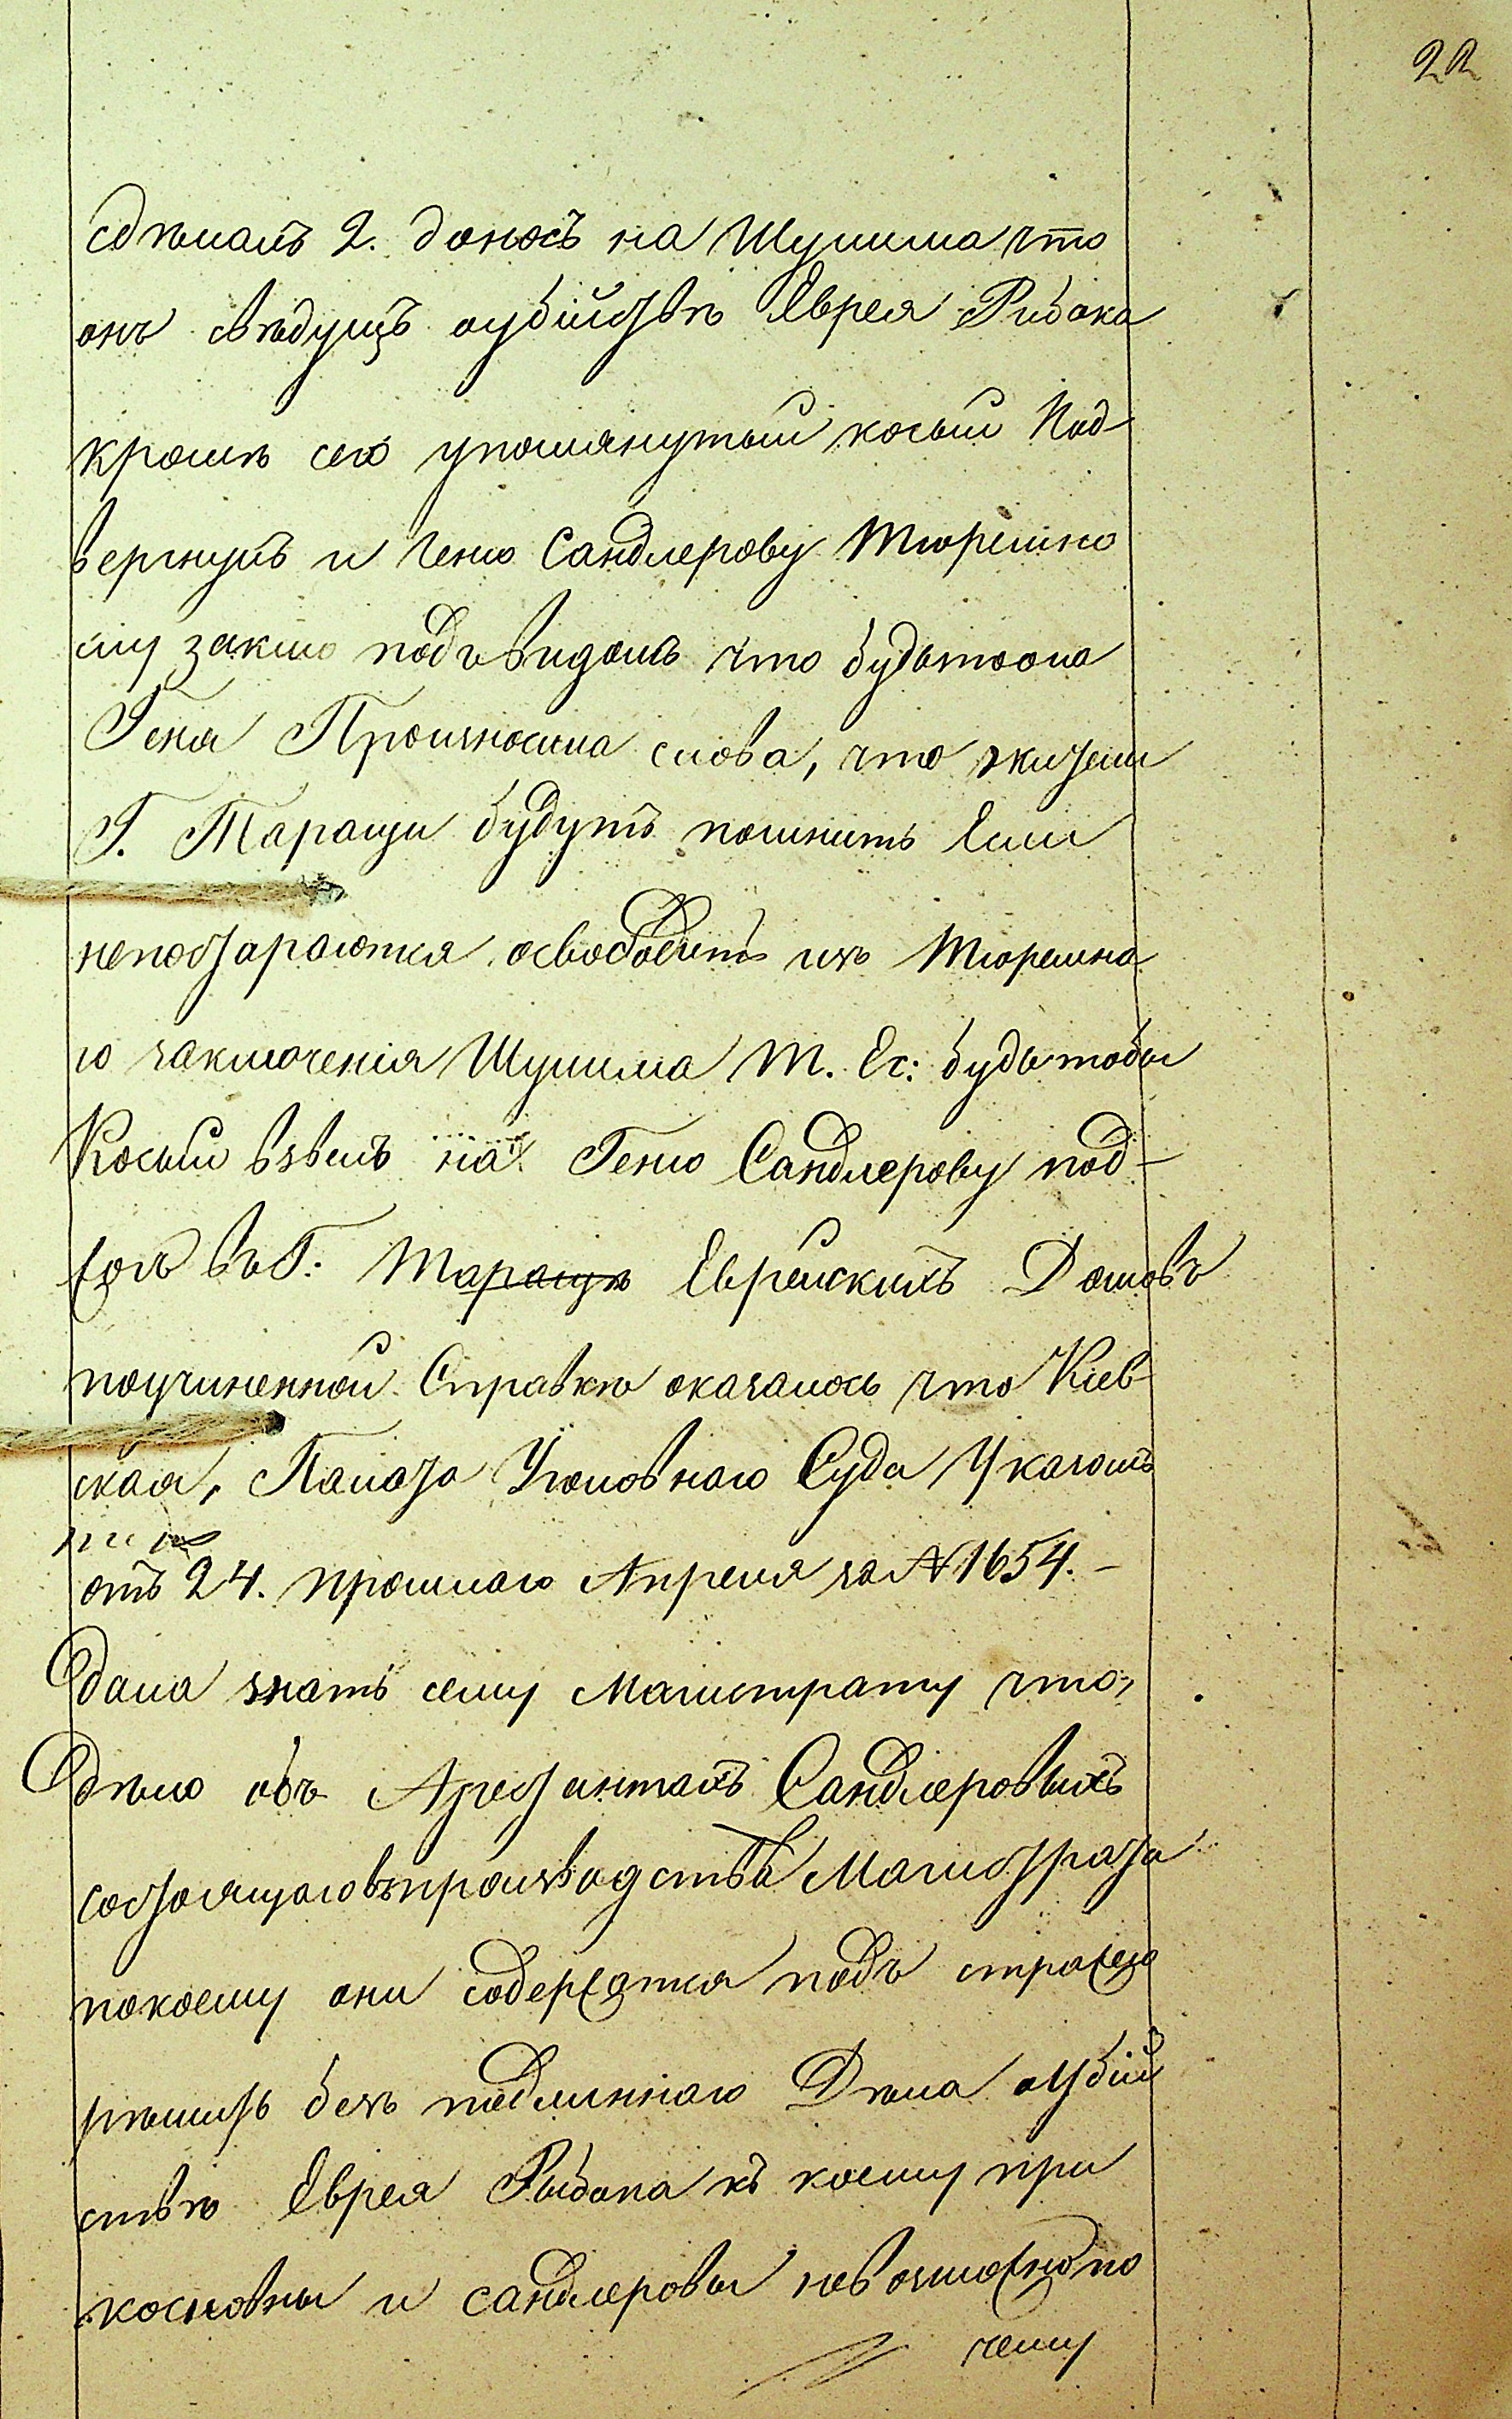 22
сдѣлалъ 2. доносъ на Шулима что
онъ свѣдущъ оубійствѣ Еврея Рибака
кромѣ сего упомянутый косый Под-
вергнулъ и Геню Сандлерову Тюремно
му заклю подъ видомъ что будьтоона
Геня Произносила слова, что жители
Г. Таращи будутъ помнить Если
непостараются освободить изъ Тюремна
го заключенія Шулима Т. Ес: будьтобы
Косый взвелъ на Геню Сандлерову под-
жогъ въ Г: Таращѣ Еврейскихъ Домовъ
поучиненной Справкѣ оказалось что Кіев-
ская, Палата Уголовнаго Суда Указомъ
отъ 24. прошлаго Апреля за № 1654. -
дала знать сему Магистрату что,
дѣло объ Арестантахъ Сандлеровыхъ
состоящаго въ производствѣ Магистрата
покоему они содержатся подъ стражею
рѣшить безъ подлиннаго Дѣла оУбій
ствѣ Еврея Рыбака къ коему при
косновны и сандлеровы невозможно по
чему